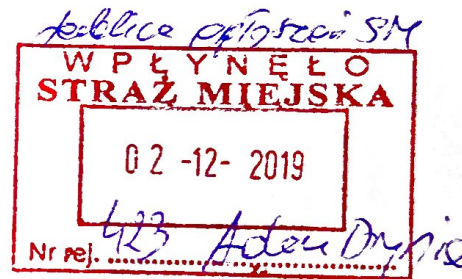 tablica ogłoszeń SM
WPŁYNĘŁO
STRAŻ MIEJSKA
02 -12- 2019
Nr rej. 423 Adam